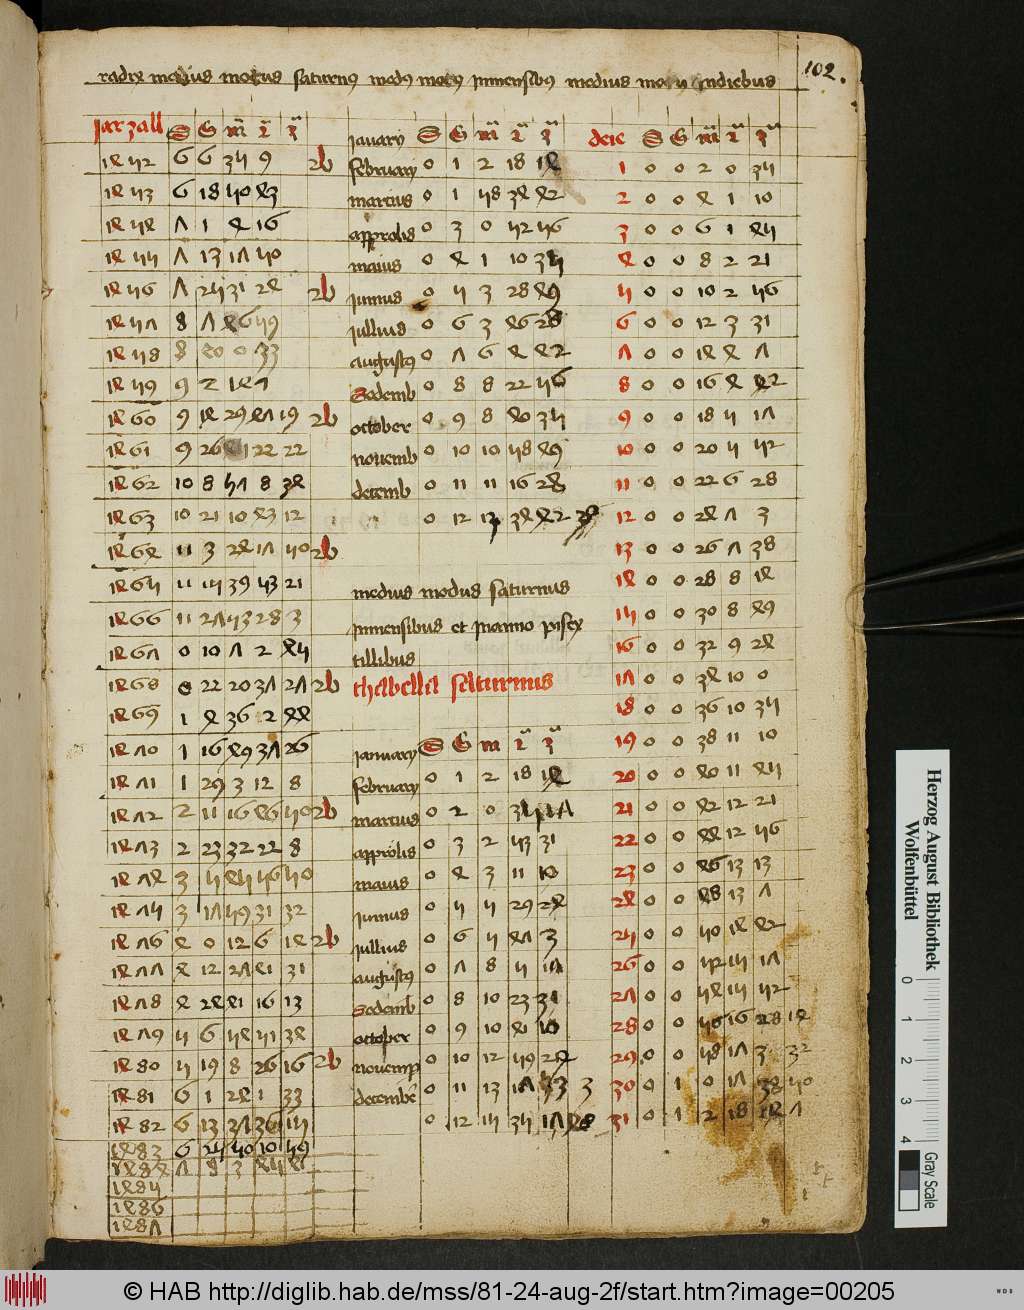 radix medius motus saturnus medus motus inmensibus medius motus indiebus 102.
jarzall S G m 2 3
1452 6 6 35 9 2b
1453 6 18 50 43
1454 7 1 4 16
1455 7 13 17 50
1456 7 25 31 24 2b
1457 8 7 46 59
1458 8 40 0 33
1459 9 2 14 7
1460 9 14 29 47 19 2b
1461 9 26 22 22
1462 10 8 57 8 34
1463 10 21 10 43 12
1464 11 3 24 17 50 2b
1465 11 15 39 53 21
1466 11 27 53 28 3
1467 0 10 7 2 45
1468 0 22 20 37 27 2b
1469 1 4 36 2 44
1470 1 16 49 37 26
1471 1 29 3 12 8
1472 2 11 16 46 50 2b
1473 2 23 32 22 8
1474 3 5 45 56 50
1475 3 17 59 31 32
1476 4 0 12 6 14 2b
1477 4 12 27 41 31
1478 4 24 41 16 13
1479 5 6 54 51 34
1480 5 19 8 26 16 2b
1481 6 1 24 1 33
1482 6 13 37 36 15
1483 6 25 50 10 59
1484 7 8 3 45 41
1485
1486
1487
januarij S G m 2 3
februarij 0 1 2 18 14
marcius 0 1 58 34 42
approlis 0 3 0 52 56
maius 0 4 1 10 35
junius 0 5 3 28 49
jullius 0 6 3 46 28
augustus 0 7 6 4 42
Sedemb 0 8 8 22 56
october 0 9 8 40 35
novemb 0 10 10 58 49
detemb 0 11 11 16 28
0 12 13 34 42
medius modus saturnus
inmensibus et inanno pisex
tillibus
thebella saturnus
januarij S G m 2 3
februarij 0 1 2 18 14
marcius 0 2 0 35 17
approlis 0 3 2 53 31
maius 0 4 3 11 10
junius 0 5 5 29 24
jullius 0 6 5 47 3
augustus 0 7 8 5 17
Sedemb 0 8 10 23 31
october 0 9 10 41 10
novemp 0 10 12 59 24
decembe 0 11 13 17 33 3
0 12 15 35 17 48
deie S G m 2 3
1 0 0 2 0 35
2 0 0 4 1 10
3 0 0 6 1 45
4 0 0 8 2 21
5 0 0 10 2 56
6 0 0 12 3 31
7 0 0 14 4 7
8 0 0 16 4 42
9 0 0 18 5 17
10 0 0 20 5 52
11 0 0 22 6 28
12 0 0 24 7 3
13 0 0 26 7 38
14 0 0 28 8 14
15 0 0 30 8 49
16 0 0 32 9 24
17 0 0 34 10 0
18 0 0 36 10 35
19 0 0 38 11 10
20 0 0 40 11 45
21 0 0 42 12 21
22 0 0 44 12 56
23 0 0 46 13 13
24 0 0 48 13 7
25 0 0 50 14 42
26 0 0 52 15 17
27 0 0 54 15 52
28 0 0 56 16 28 14
29 0 0 58 17 3 32
30 0 1 0 17 38 50
31 0 1 2 18 14 7
Herzog August Bibliothek
Wolfenbüttel
0 1 2 3 4
Gray Scale
© HAB http://diglib.hab.de/mss/81-24-aug-2f/start.htm?image=00205